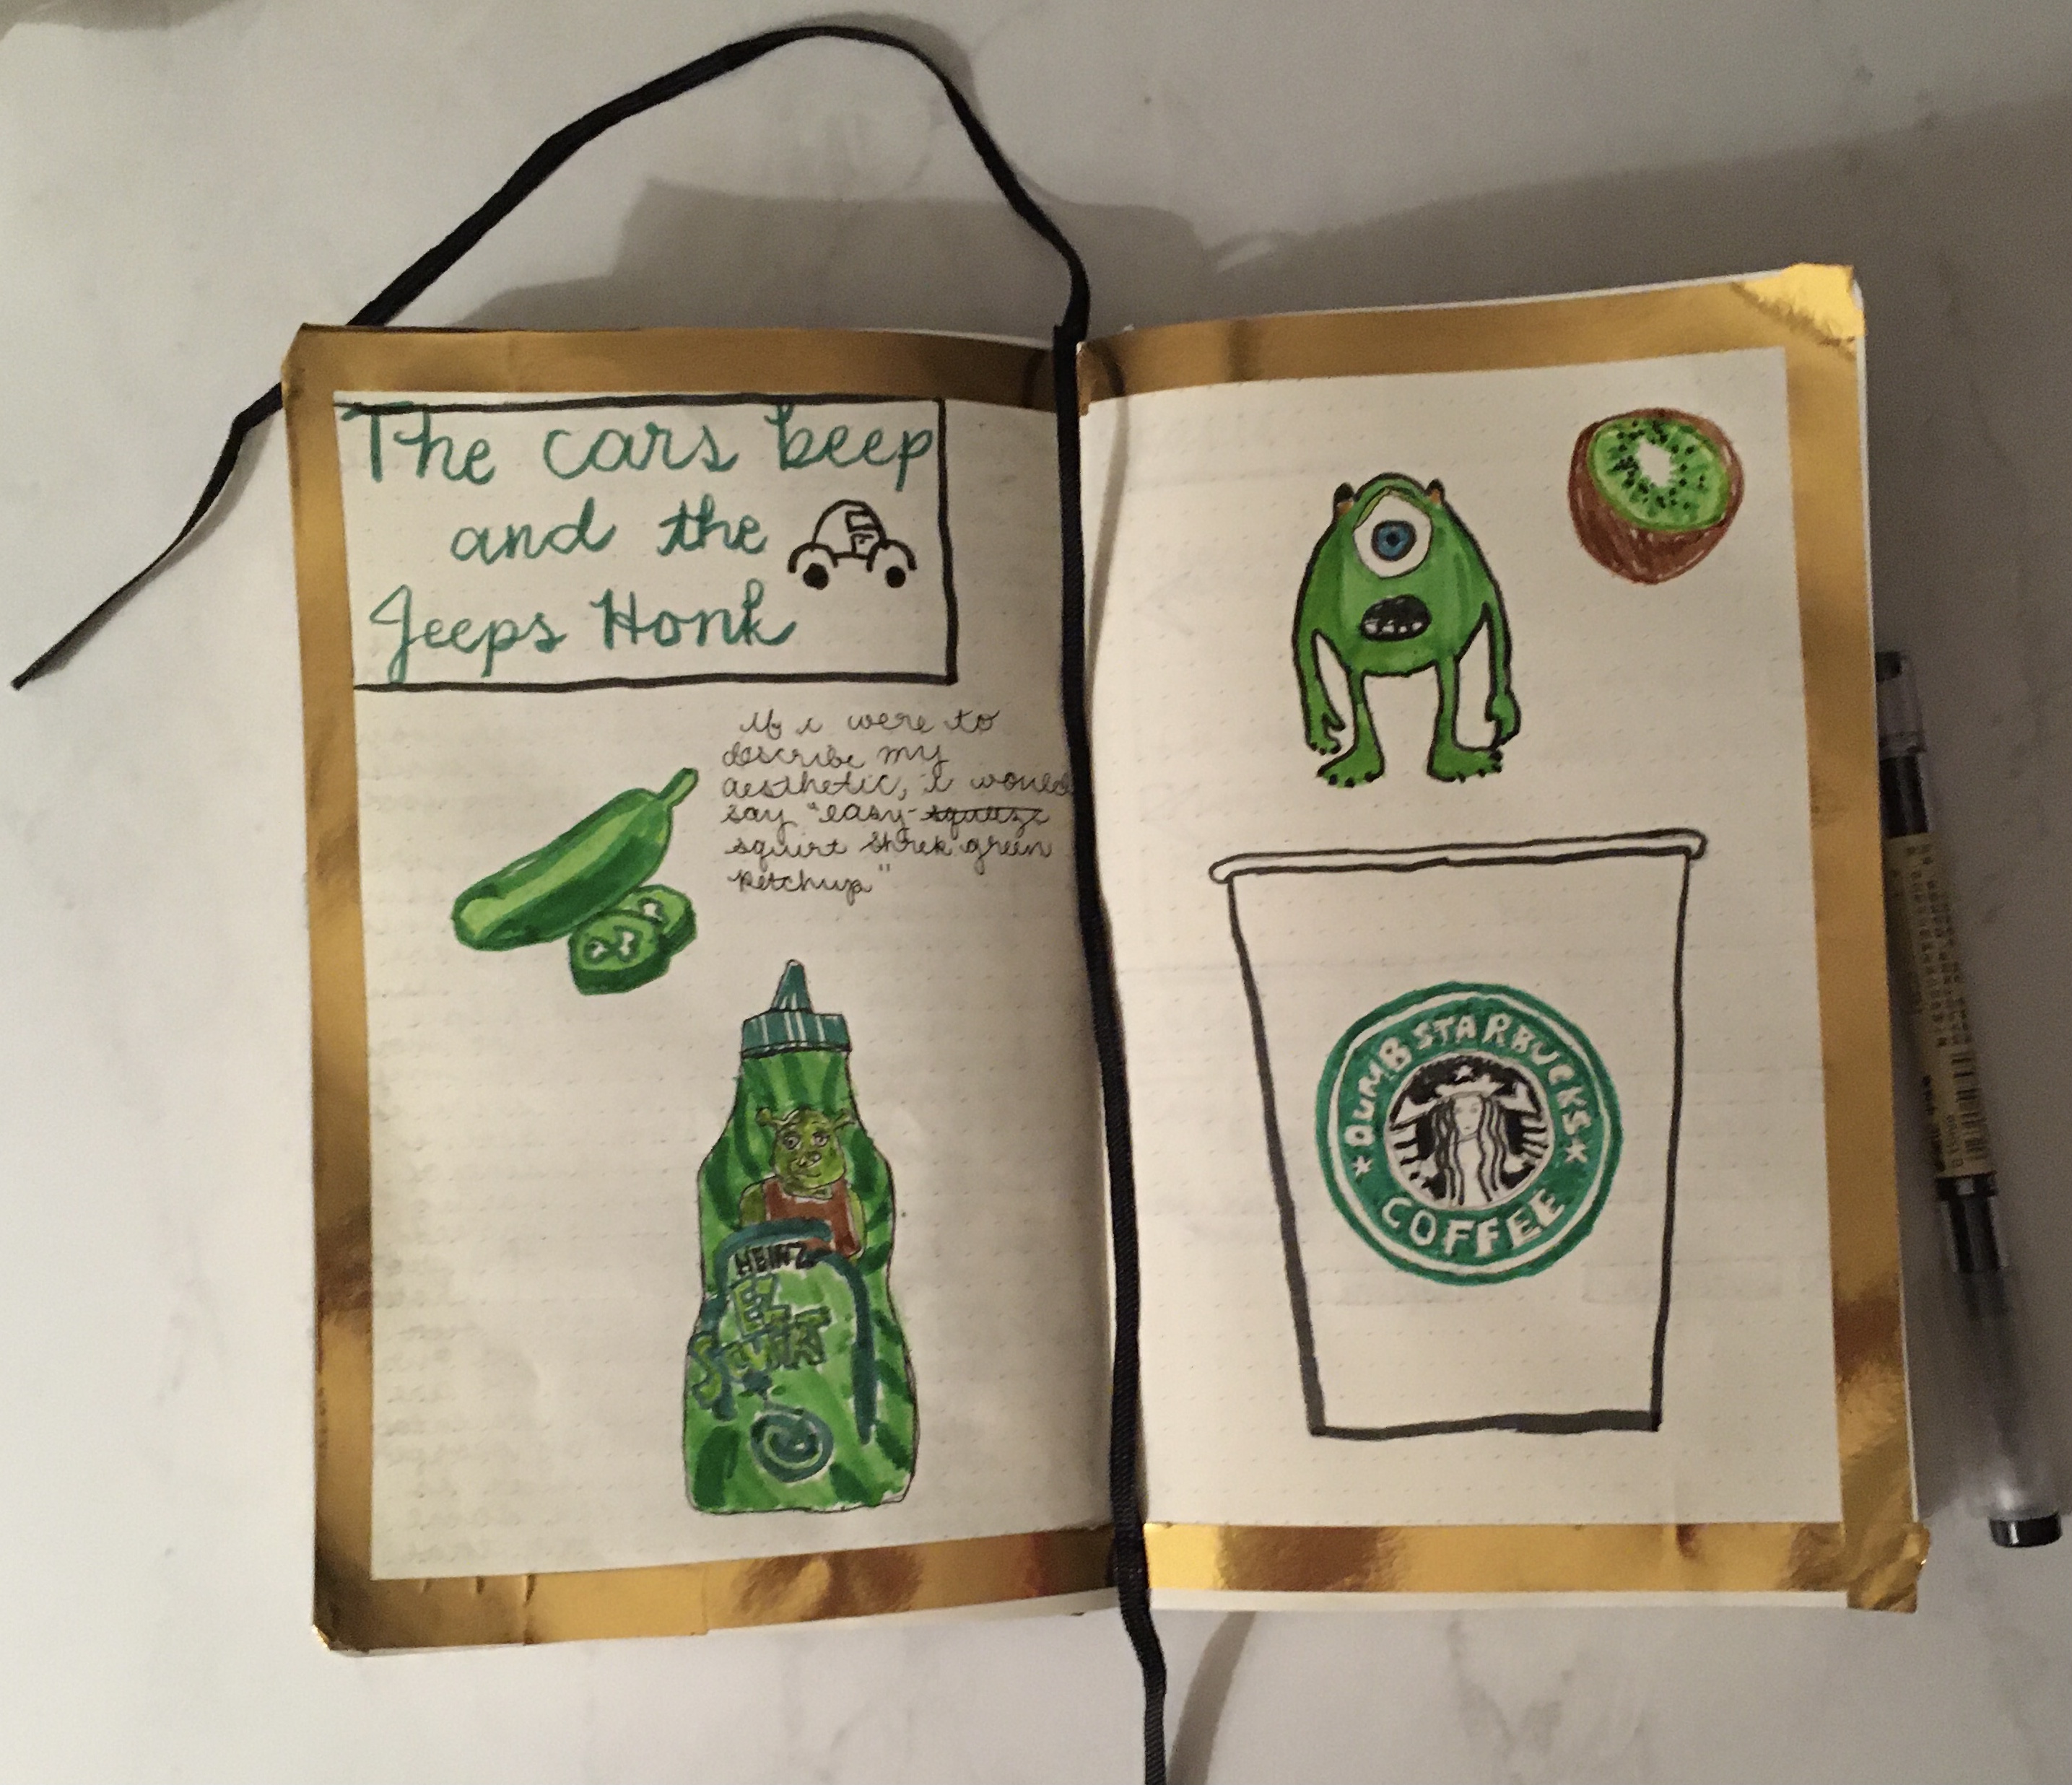 The cars beep
and the
Jeeps Honk
If i were to
describe my
aesthetic, i would
say "easy-squeeze
squirt Shrek green
ketchup"
HEINZ
EZ
SQUIRT
DUMB STARBUCKS
COFFEE